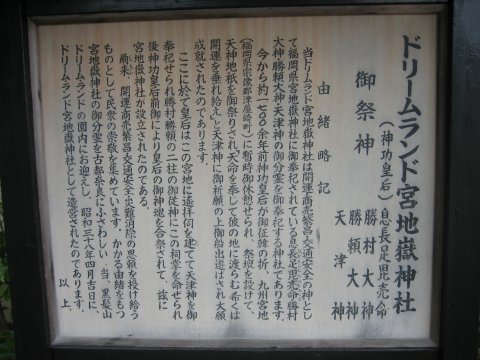 ドリームランド宮地嶽神社
御祭神
(神功皇后)息長足毘売命
勝村大神
勝頼大神
天津神
由緒略記
当ドリームランド宮地嶽神社は開運商売繁昌交通安全の神とし
て福岡県宮地嶽神社に御奉祀されている息長足毘売命勝村
大神勝頼大神天津神の御分霊を御奉祀する神社であります。
今から約一七〇〇余年前神功皇后が御征韓の折、九州宮地
(福岡県宗像郡津屋崎町)に暫時御休憩せられ、祭壇を設けて、
天神地祇を御祭りされ「天命を奉じて彼の地に渡らむ希くは
開運を垂れ給え」と天津神に御祈願の上御船出遊ばされ大願
成就されたのであります。
ここに於て皇后はこの宮地に遥拝伺を建てて天津神を御
奉祀せられ勝村勝頼の二柱の御従神にこの祠掌を命せられ
後神功皇后崩御により皇后の御神魂を合祭されて、茲に
宮地嶽神社が設立されたのである。
爾来、開運商売繁昌交通安全災難消除の恩頼を授け給う
ものとして民衆の崇敬を集めています。かかる由緒をもつ
宮地嶽神社の御分霊を古都奈良にふさわしい当、黒髪山
ドリームランドの園内にお迎えし、昭和三十八年四月吉日に、
ドリームランド宮地嶽神社として造営されたのであります。
以上、